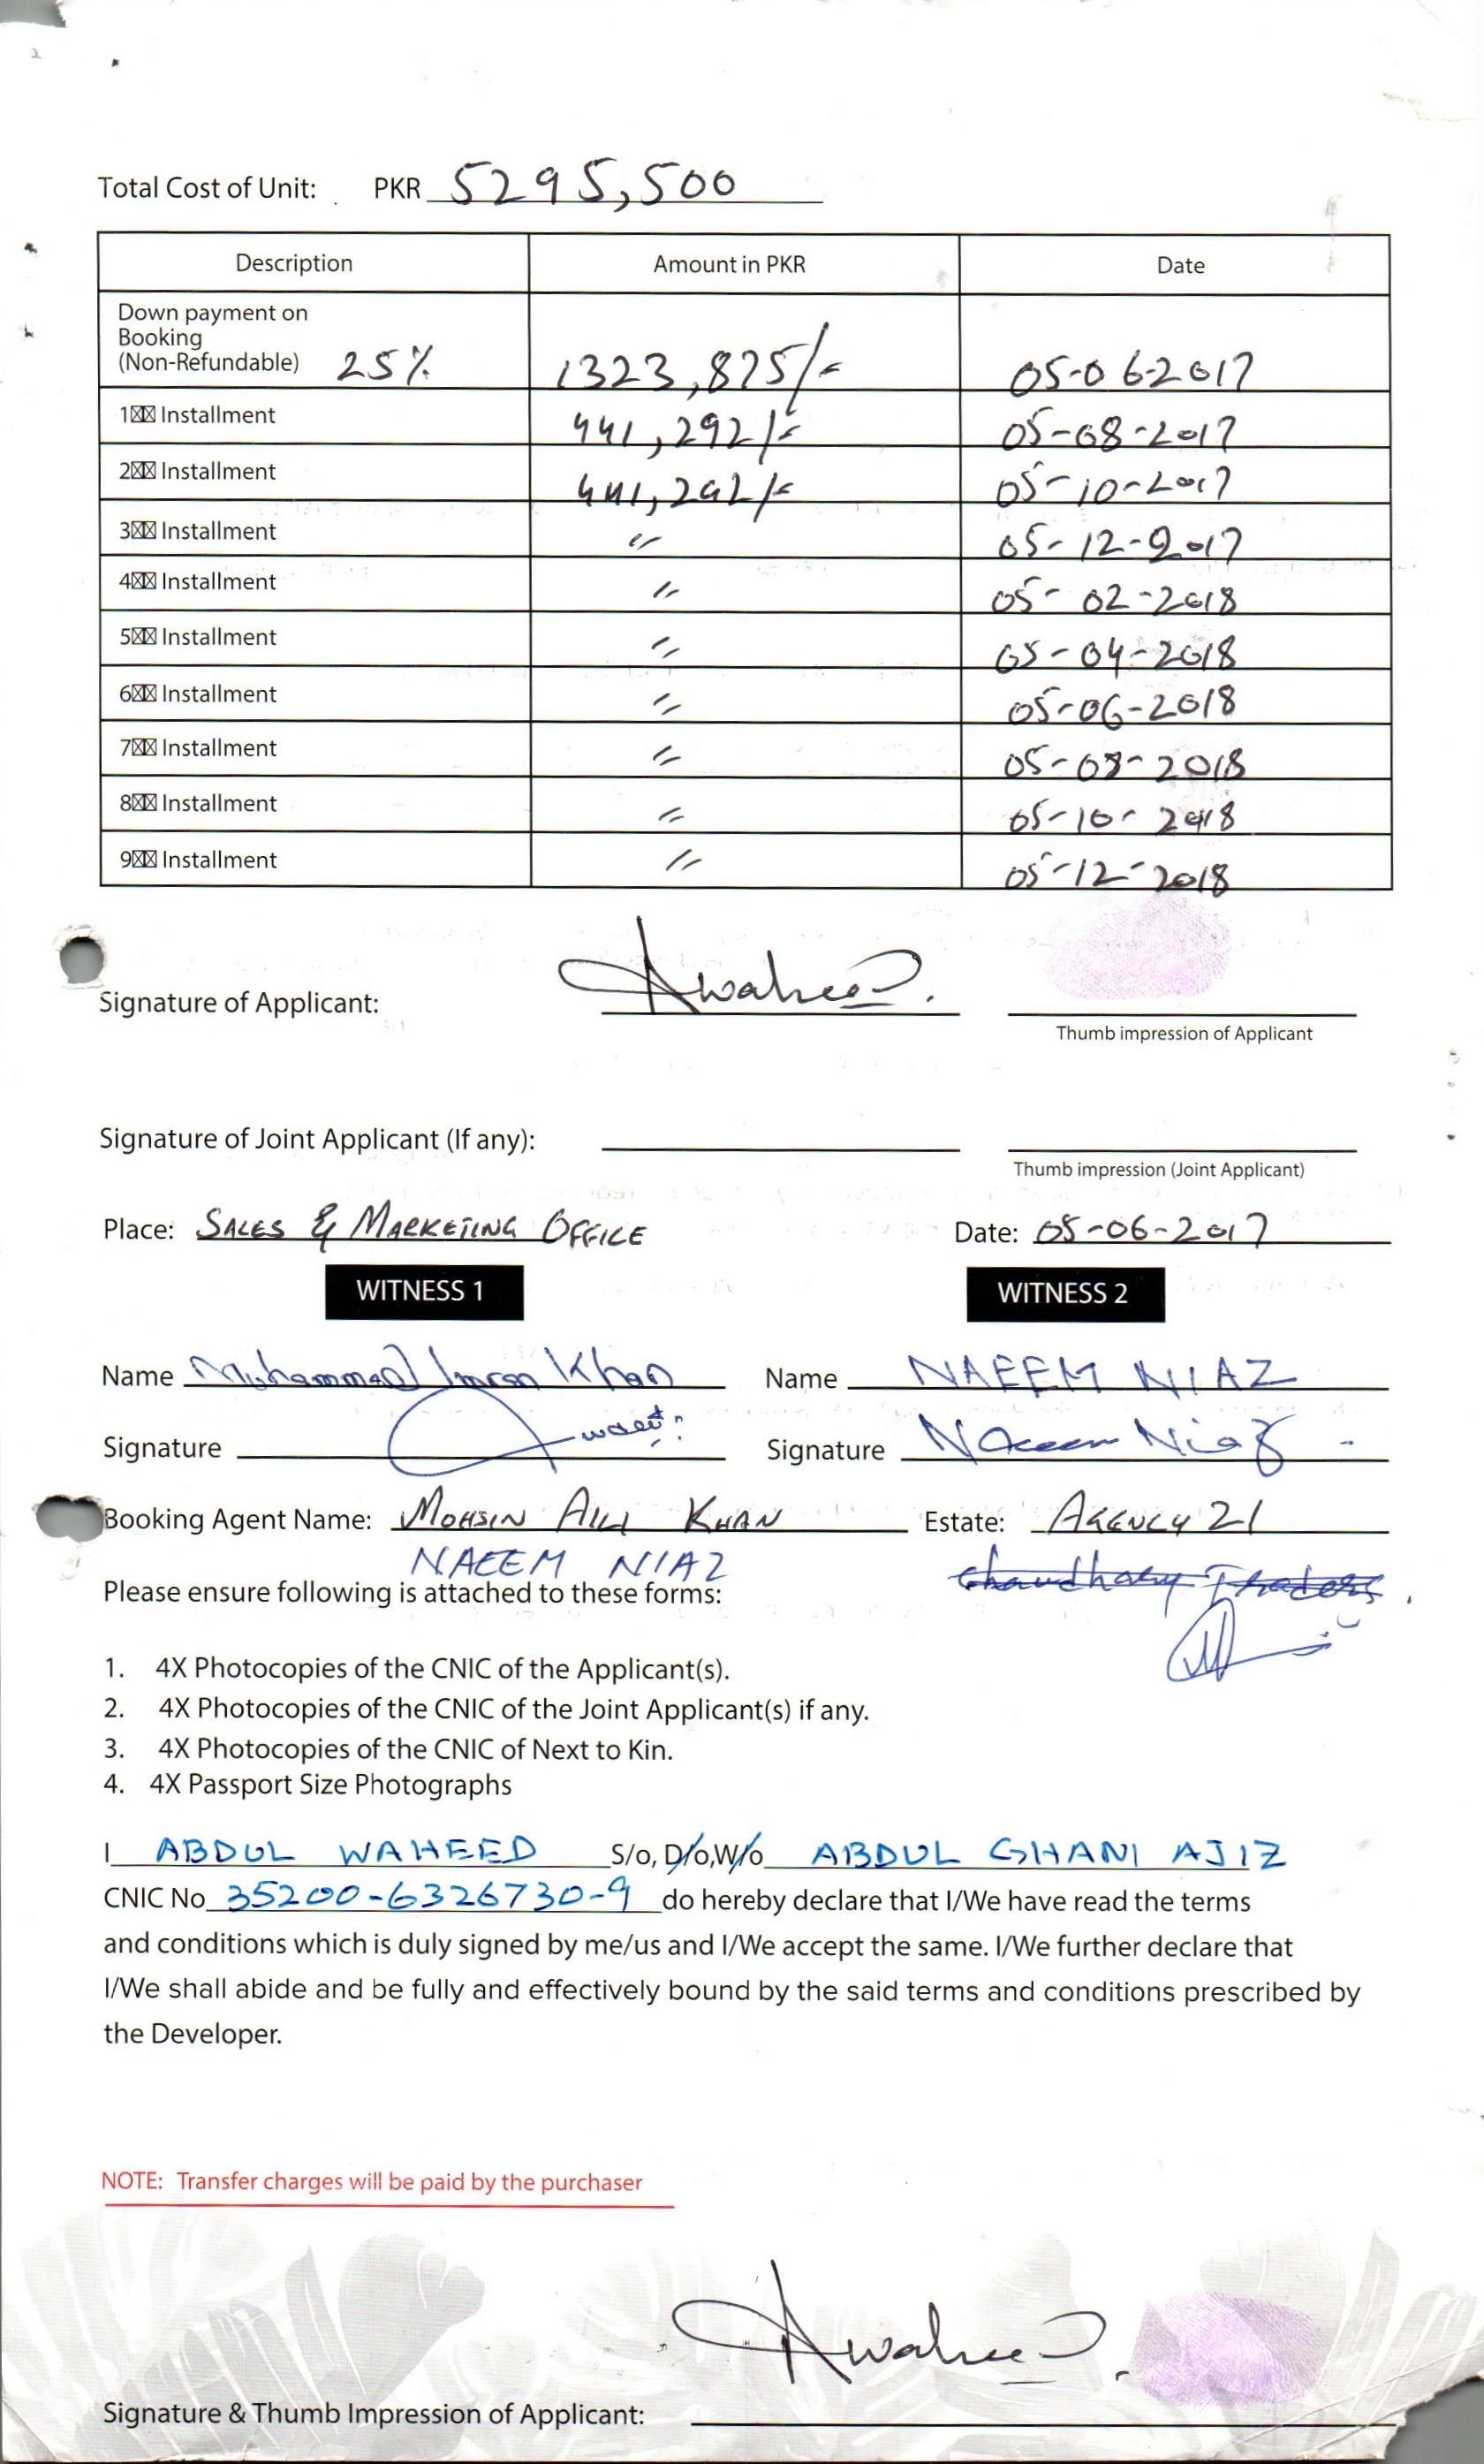 Total Cost of Unit: PKR 5295,500
Description Amount in PKR Date
Down payment on
Booking
(Non-Refundable) 25% 1323,875/- 05-06-2017
1 Installment 441,292/- 05-08-2017
2 Installment 441,292/- 05-10-2017
3 Installment 〃 05-12-2017
4 Installment 〃 05-02-2018
5 Installment 〃 05-04-2018
6 Installment 〃 05-06-2018
7 Installment 〃 05-08-2018
8 Installment 〃 05-10-2018
9 Installment 〃 05-12-2018
Signature of Applicant: Awaheed.
Thumb impression of Applicant
Signature of Joint Applicant (If any):
Thumb impression (Joint Applicant)
Place: SALES & MARKETING OFFICE Date: 05-06-2017
WITNESS 1 WITNESS 2
Name Muhammad Imran Khan Name NAEEM NIAZ
Signature Signature Naeem Niaz
Booking Agent Name: MOHSIN ALI KHAN Estate: AGENCY 21
NAEEM NIAZ Chaudhary Traders.
Please ensure following is attached to these forms:
1. 4X Photocopies of the CNIC of the Applicant(s).
2. 4X Photocopies of the CNIC of the Joint Applicant(s) if any.
3. 4X Photocopies of the CNIC of Next to Kin.
4. 4X Passport Size Photographs
I ABDUL WAHEED S/o, D/o,W/o ABDUL GHANI AJIZ
CNIC No 35200-6326730-9 do hereby declare that I/We have read the terms
and conditions which is duly signed by me/us and I/We accept the same. I/We further declare that
I/We shall abide and be fully and effectively bound by the said terms and conditions prescribed by
the Developer.
NOTE: Transfer charges will be paid by the purchaser
Awaheed.
Signature & Thumb Impression of Applicant: